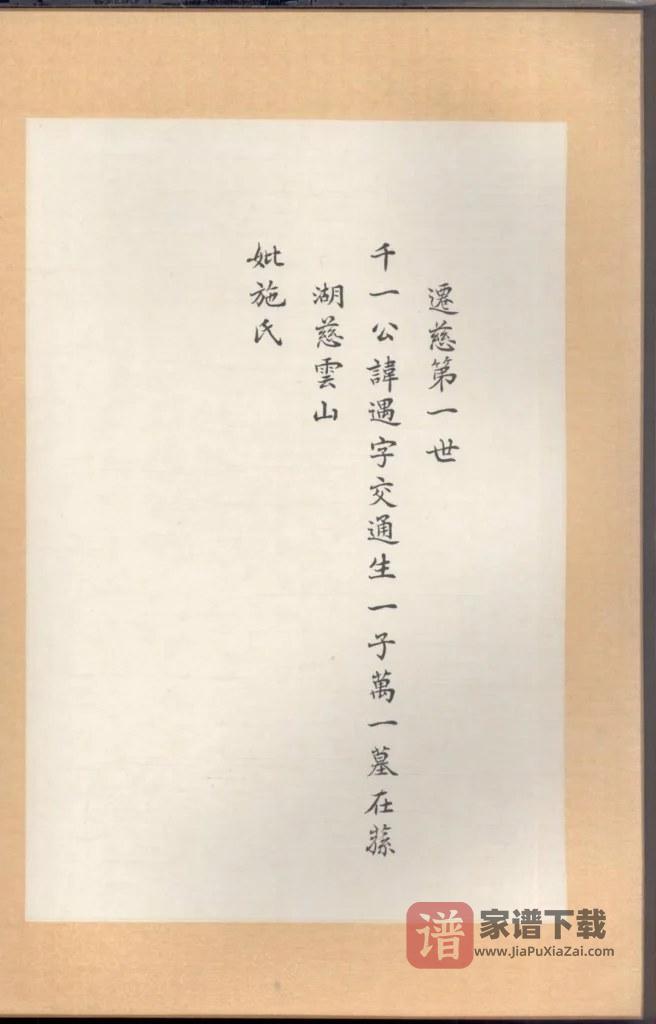 遷慈第一世
千一公諱遇字交通生一子萬一墓在
湖慈雲山
妣施氏
谱 家谱下载
www.JiaPuXiaZai.com